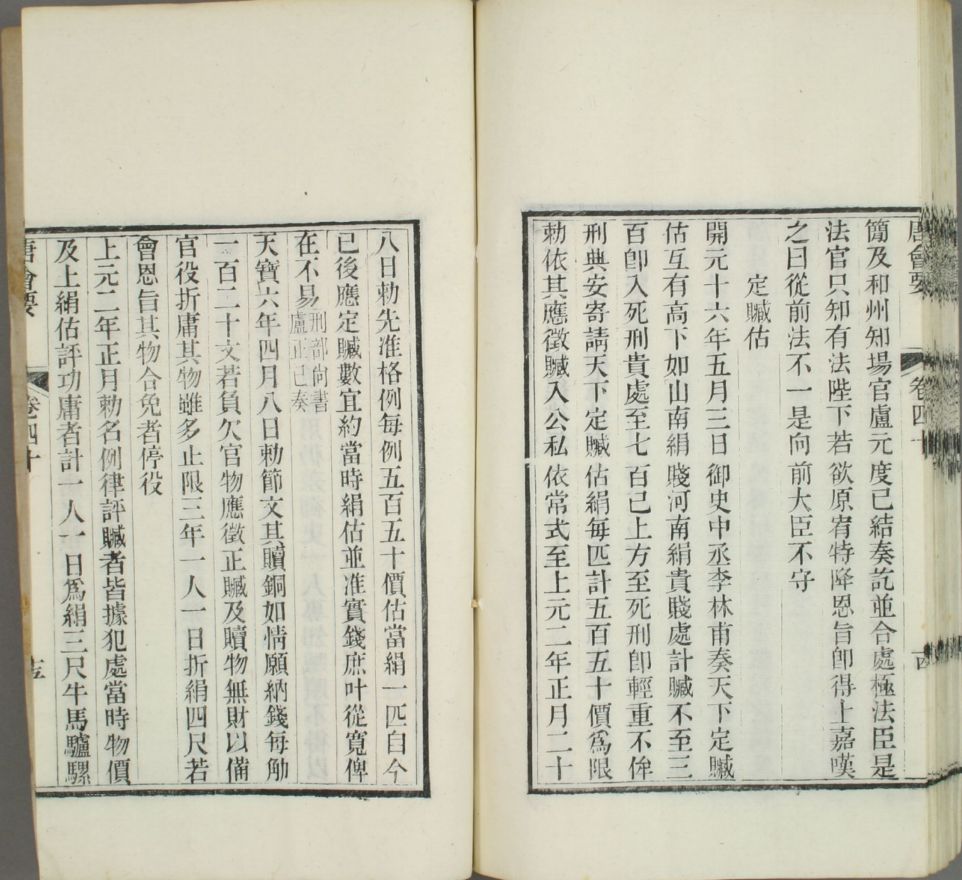 唐會要 卷四十 十四
簡及和州知場官盧元度已結奏訖並合處極法臣是
法官只知有法陛下若欲原宥特降恩旨卽得上嘉嘆
之曰從前法不一是向前大臣不守
定贓估
開元十六年五月三日御史中丞李林甫奏天下定贓
估互有高下如山南絹賤河南絹貴賤處計贓不至三
百卽入死刑貴處至七百已上方至死刑卽輕重不侔
刑典安寄請天下定贓估絹每匹計五百五十價爲限
勅依其應徵贓入公私依常式至上元二年正月二十
八日勅先准格例每例五百五十價估當絹一匹自今
已後應定贓數宜約當時絹估並准實錢庶叶從寬俾
在不易刑部尚書盧正己奏
天寶六年四月八日勅節文其贖銅如情願納錢每觔
一百二十文若負欠官物應徵正贓及贖物無財以備
官役折庸其物雖多止限三年一人一日折絹四尺若
會恩旨其物合免者停役
上元二年正月勅名例律評贓者皆據犯處當時物價
及上絹估評功庸者計一人一日爲絹三尺牛馬驢騾
唐會要 卷四十 十五